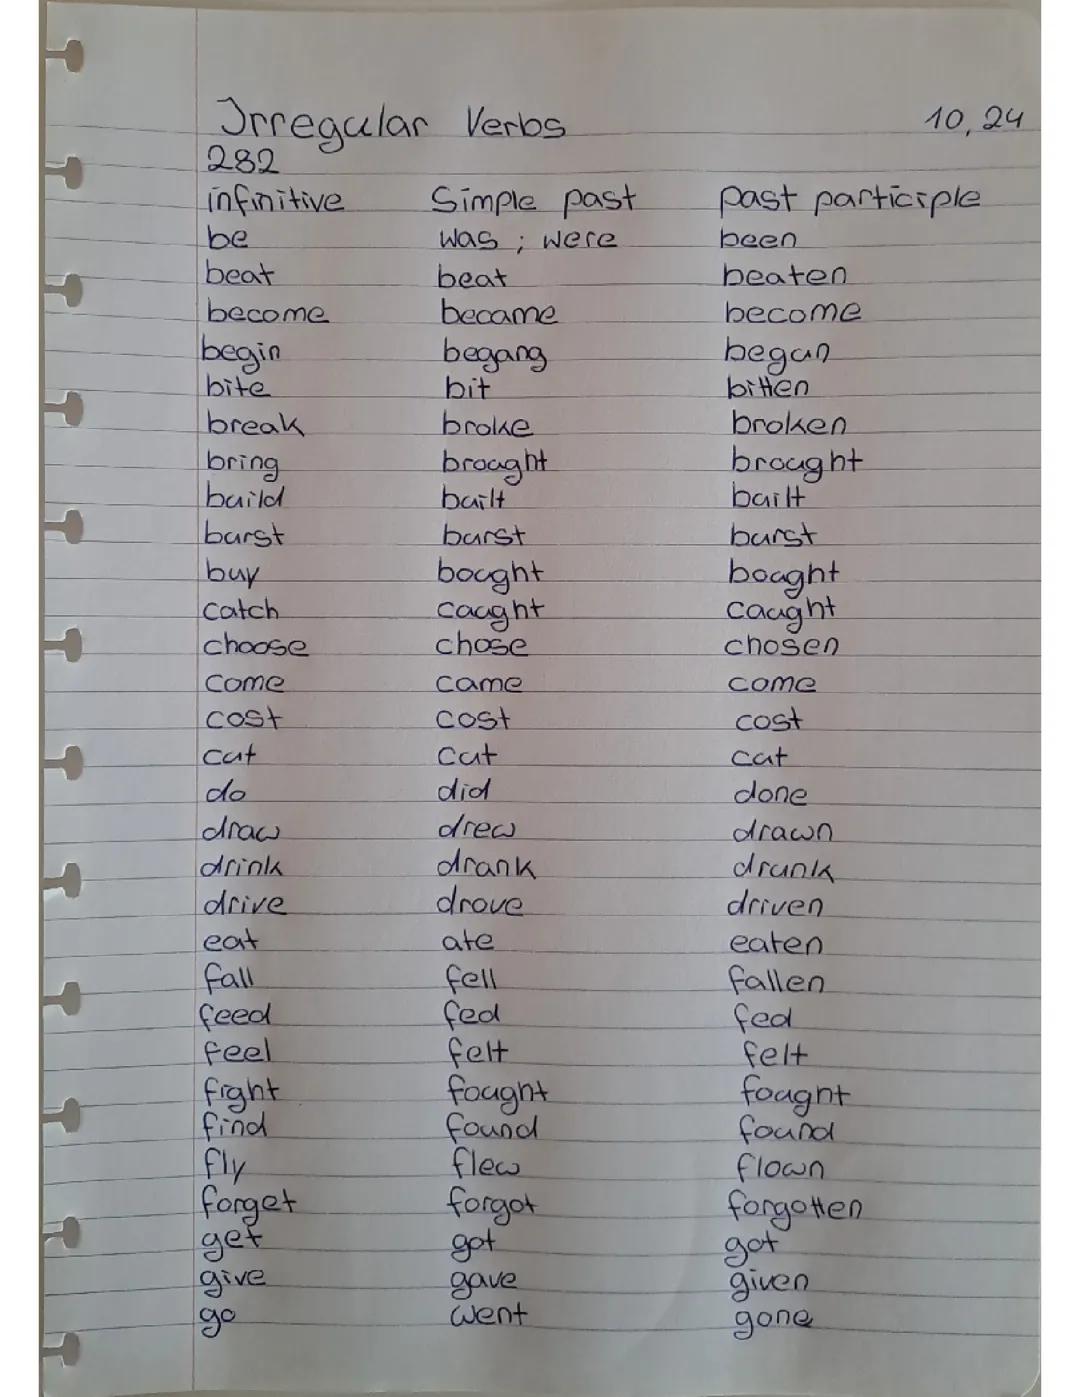 Irregular Verbs 10, 24
282
infinitive Simple past past participle
be was ; were been
beat beat beaten
become became become
begin begang began
bite bit bitten
break broke broken
bring brought brought
build built built
burst burst burst
buy bought bought
catch caught caught
choose chose chosen
come came come
cost cost cost
cut cut cut
do did done
draw drew drawn
drink drank drunk
drive drove driven
eat ate eaten
fall fell fallen
feed fed fed
feel felt felt
fight fought fought
find found found
fly flew flown
forget forgot forgotten
get got got
give gave given
go went gone